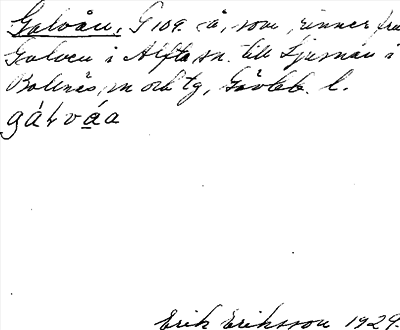 Galvån, G 109. å, som rinner från
Galven i Alfta sn. till Ljusnan i
Bollnäs sn och tg, Gävleb. l.
gálva̲a
Erik Eriksson 1929.